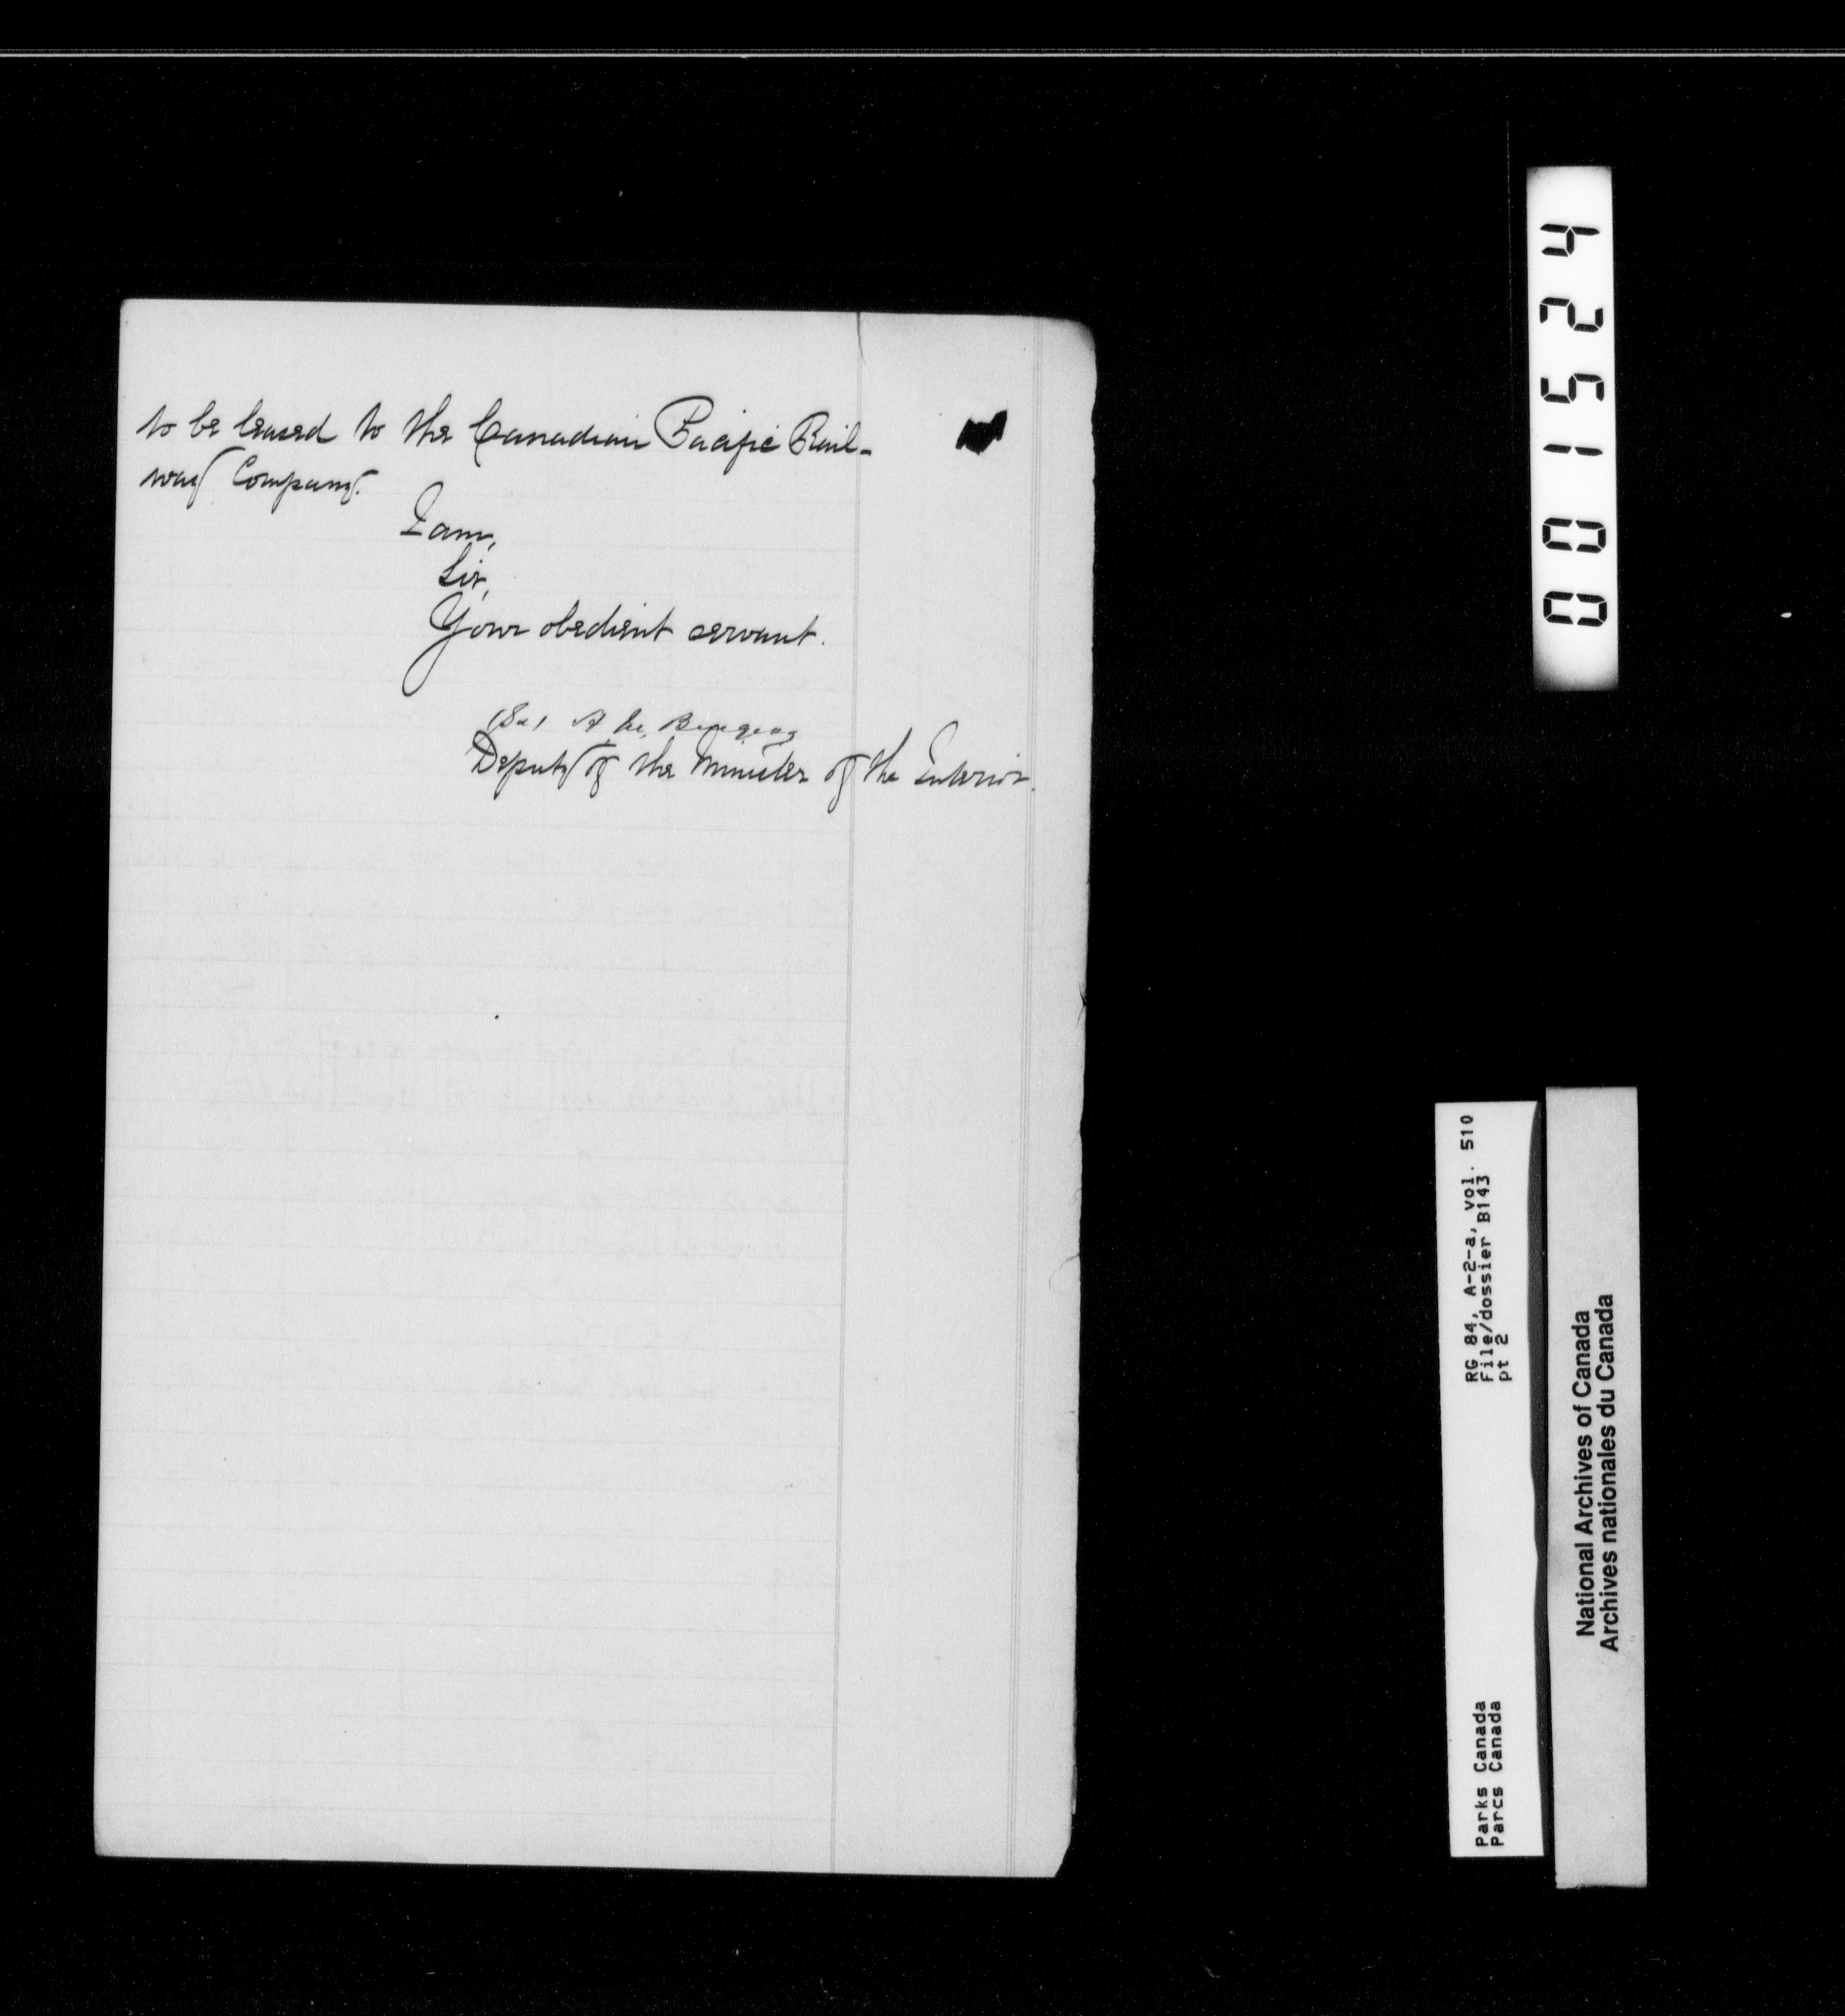 to be leased to the Canadian Pacific Rail-
way Company.
I am,
Sir,
Your obedient servant.
(Sd) A. M. Burgess
Deputy of the Minister of the Interior.
001524
RG 84, A-2-a, vol. 510
File/dossier B143
pt 2
Parks Canada
Parcs Canada
National Archives of Canada
Archives nationales du Canada